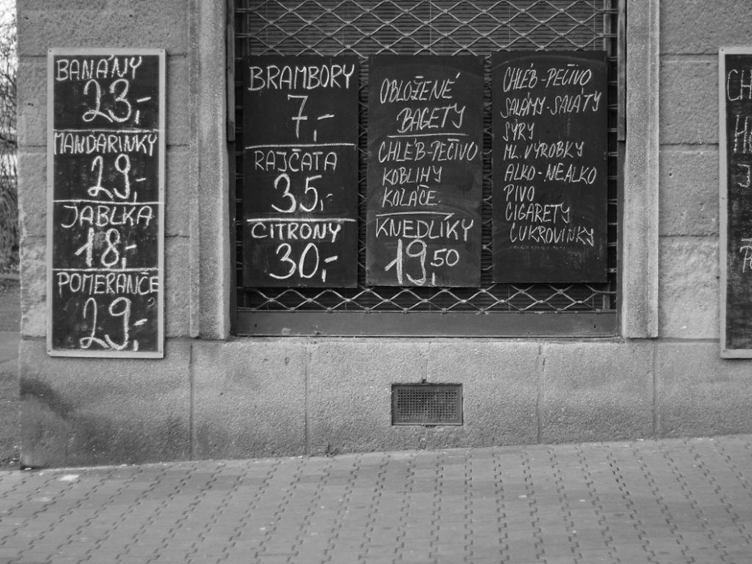 BANÁNY
23,-
MANDARINKY
29,-
JABLKA
18,-
POMERANČE
29,-
BRAMBORY
7,-
RAJČATA
35,-
CITRONY
30,-
OBLOŽENÉ
BAGETY
CHLÉB-PEČIVO
KOBLIHY
KOLÁČE.
KNEDLÍKY
19,50
CHLÉB-PEČIVO
SALÁMY-SALÁTY
SÝRY
ML. VÝROBKY
ALKO-NEALKO
PIVO
CIGARETY
CUKROVINKY